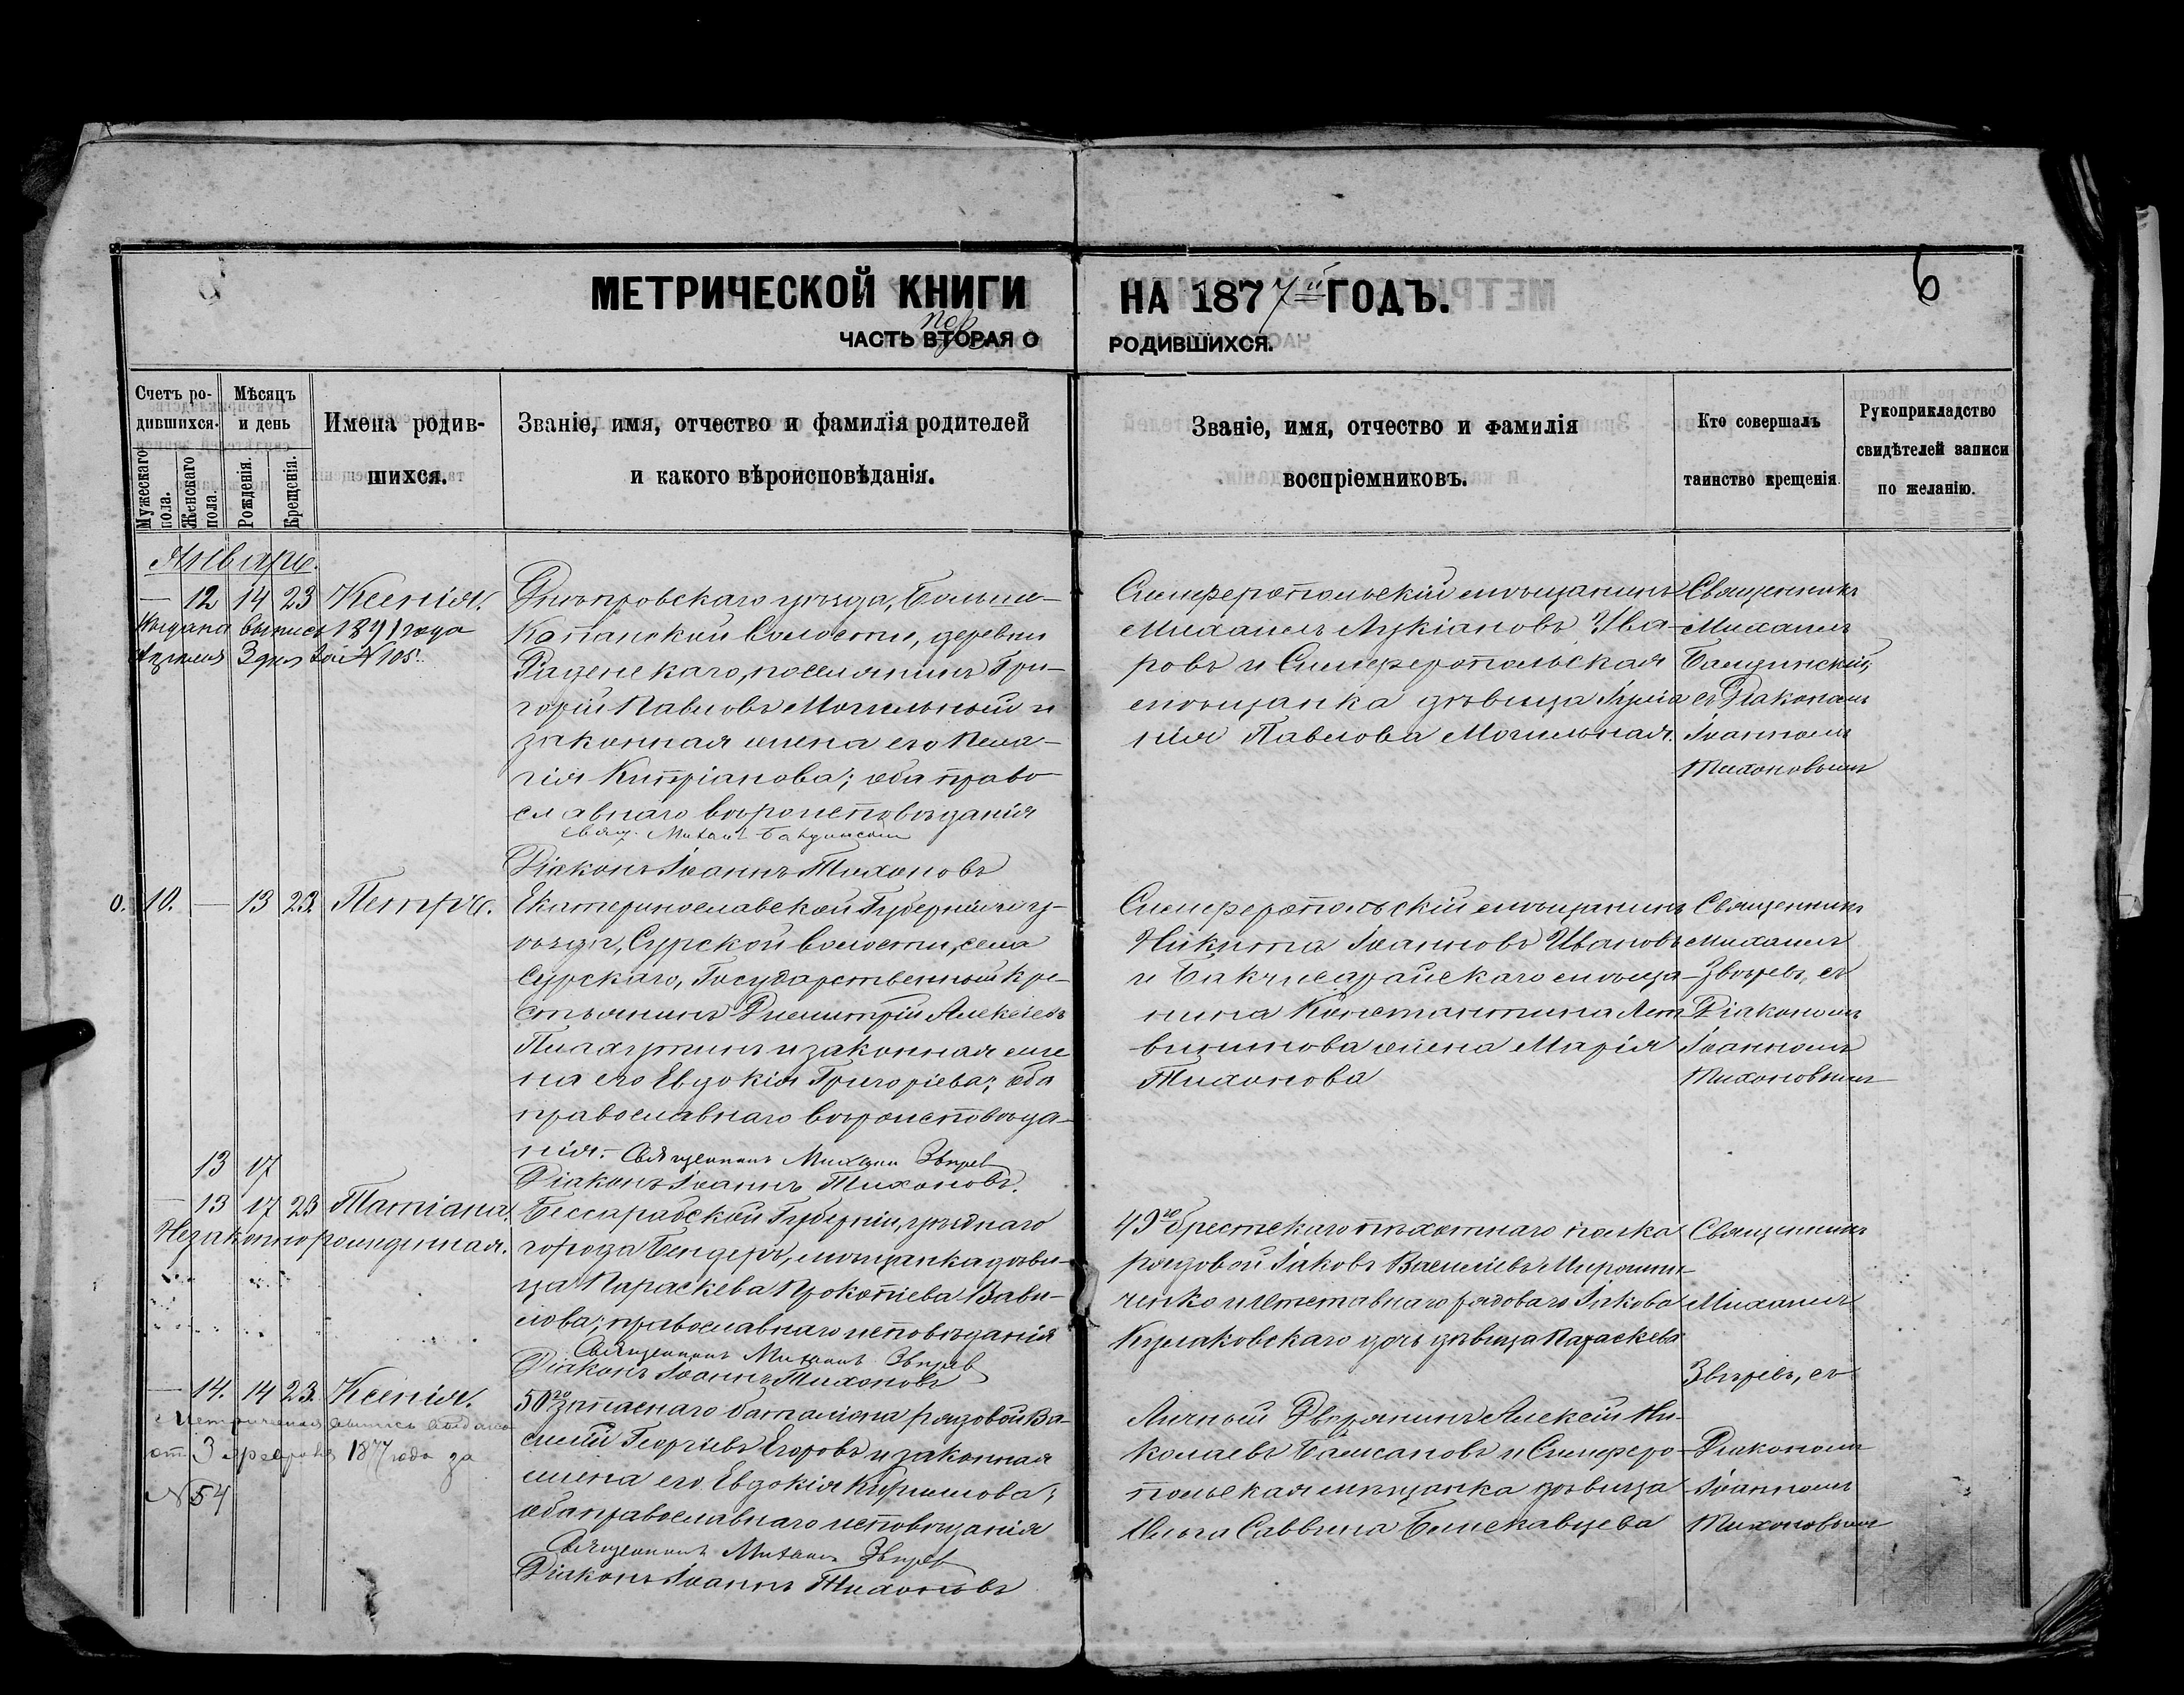 6
МЕТРИЧЕСКОЙ КНИГИ НА 1877й ГОДЪ.
пер
ЧАСТЬ ВТОРАЯ О РОДИВШИХСЯ.
Счетъ ро-
дившихся.
Мужескаго пола.
Женскаго пола.
Мѣсяцъ
и день
Рожденія.
Крещенія.
Имена родив-
шихся.
Званіе, имя, отчество и фамилія родителей
и какого вѣроисповѣданія.
Званіе, имя, отчество и фамилія
воспріемниковъ.
Кто совершалъ
таинство крещенія.
Рукоприкладство
свидѣтелей записи
по желанію.
Январь.
— 12 14 23 Ксенія.
Выдана выпись 1891 года
Апреля 3 дня за № 105.
Днѣпровскаго уѣзда, Больше-
Копанской волости, деревни
поселянинъ Гри-
горій Павловъ Могильный и
законная жена его Пела-
гія Кипріанова; оба право-
славнаго вѣроисповѣданія
Свящ. Михаилъ
Діаконъ Іоаннъ Тихоновъ
Симферопольскій мѣщанинъ
Михаилъ Лукіановъ Ува-
ровъ и Симферопольская
мѣщанка дѣвица
Павлова Могильная.
Священникъ
Михаилъ
съ Діакономъ
Іоанномъ
Тихоновымъ
0. 10. — 13 23. Петръ.
Екатеринославской Губерніи и у-
ѣзда, Сурской волости, села
Сурскаго, Государственный кре-
стьянинъ Димитрій Алексѣевъ
и законная же-
на его Евдокія Григоріева; оба
православнаго вѣроисповѣда-
нія. Священникъ Михаилъ Звѣревъ
Діаконъ Іоаннъ Тихоновъ.
Симферопольскій мѣщанинъ
Никита Іоанновъ Ивановъ
и Бакчисарайскаго мѣща-
нина Константина Лит-
вининова жена Марія
Тихонова
Священникъ
Михаилъ
Звѣревъ, съ
Діакономъ
Іоанномъ
Тихоновымъ
13 17
— 13 17 23 Татіана.
Незаконнорожденная.
Бессарабской Губерніи, уѣзднаго
города Бендеръ, мѣщанка дѣви-
ца Параскева Прокопіева Вави-
лова; православнаго исповѣданія
Священникъ Михаилъ Звѣревъ
Діаконъ Іоаннъ Тихоновъ
49го Брестскаго пѣхотнаго полка
рядовой Іаковъ Василіевъ Мирошни-
ченко и отставнаго рядоваго Іакова
дочь дѣвица Параскева
Священникъ
Михаилъ
Звѣревъ, съ
— 14. 14 23. Ксенія.
Метрическая выпись выдана
от 3 февраля 1877 года за
№ 54
50го запаснаго баталіона рядовой Ва-
силій Георгіевъ Егоровъ и законная
жена его Евдокія Кириллова;
оба православнаго исповѣданія
Священникъ Михаилъ Звѣревъ
Діаконъ Іоаннъ Тихоновъ
Личный Дворянинъ Алексій Ни-
колаевъ и Симферо-
польская мѣщанка дѣвица
Ольга Саввина
Діакономъ
Іоанномъ
Тихоновымъ